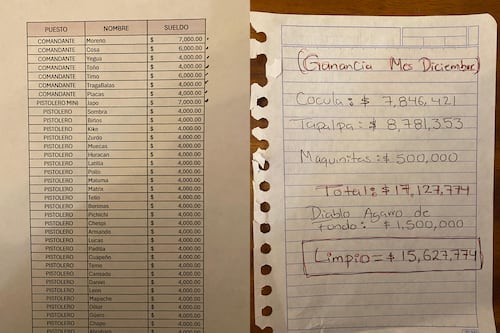 PUESTO NOMBRE SUELDO
COMANDANTE Moreno $ 7,000.00
COMANDANTE Cosa $ 6,000.00
COMANDANTE Yegua $ 4,000.00
COMANDANTE Toño $ 4,000.00
COMANDANTE Timo $ 6,000.00
COMANDANTE TragaBalas $ 4,000.00
COMANDANTE Placas $ 4,000.00
PISTOLERO MINI Japo $ 7,000.00
PISTOLERO Sombra $ 4,000.00
PISTOLERO Birlos $ 4,000.00
PISTOLERO Kike $ 4,000.00
PISTOLERO Zurdo $ 4,000.00
PISTOLERO Muecas $ 4,000.00
PISTOLERO Huracan $ 4,000.00
PISTOLERO Latilla $ 4,000.00
PISTOLERO Pollo $ 4,000.00
PISTOLERO Maluma $ 4,000.00
PISTOLERO Matrix $ 4,000.00
PISTOLERO Tello $ 4,000.00
PISTOLERO $ 4,000.00
PISTOLERO Pichichi $ 4,000.00
PISTOLERO Chespi $ 4,000.00
PISTOLERO Armando $ 4,000.00
PISTOLERO Lucas $ 4,000.00
PISTOLERO Padilla $ 4,000.00
PISTOLERO Guapeño $ 4,000.00
PISTOLERO $ 4,000.00
PISTOLERO Camsada $ 4,000.00
PISTOLERO Daniel $ 4,000.00
PISTOLERO Leon $ 4,000.00
PISTOLERO Mapache $ 4,000.00
PISTOLERO $ 4,000.00
PISTOLERO Güero $ 4,000.00
PISTOLERO Chapo $ 4,000.00
Ganancia Mes Diciembre
Cocula: $ 7,846,421
Tapalpa: $ 8,781,353
Maquinitas: $ 500,000
Total: $ 17,127,774
Diablo Agarro de
fondo: $ 1,500,000
Limpio = $ 15,627,774